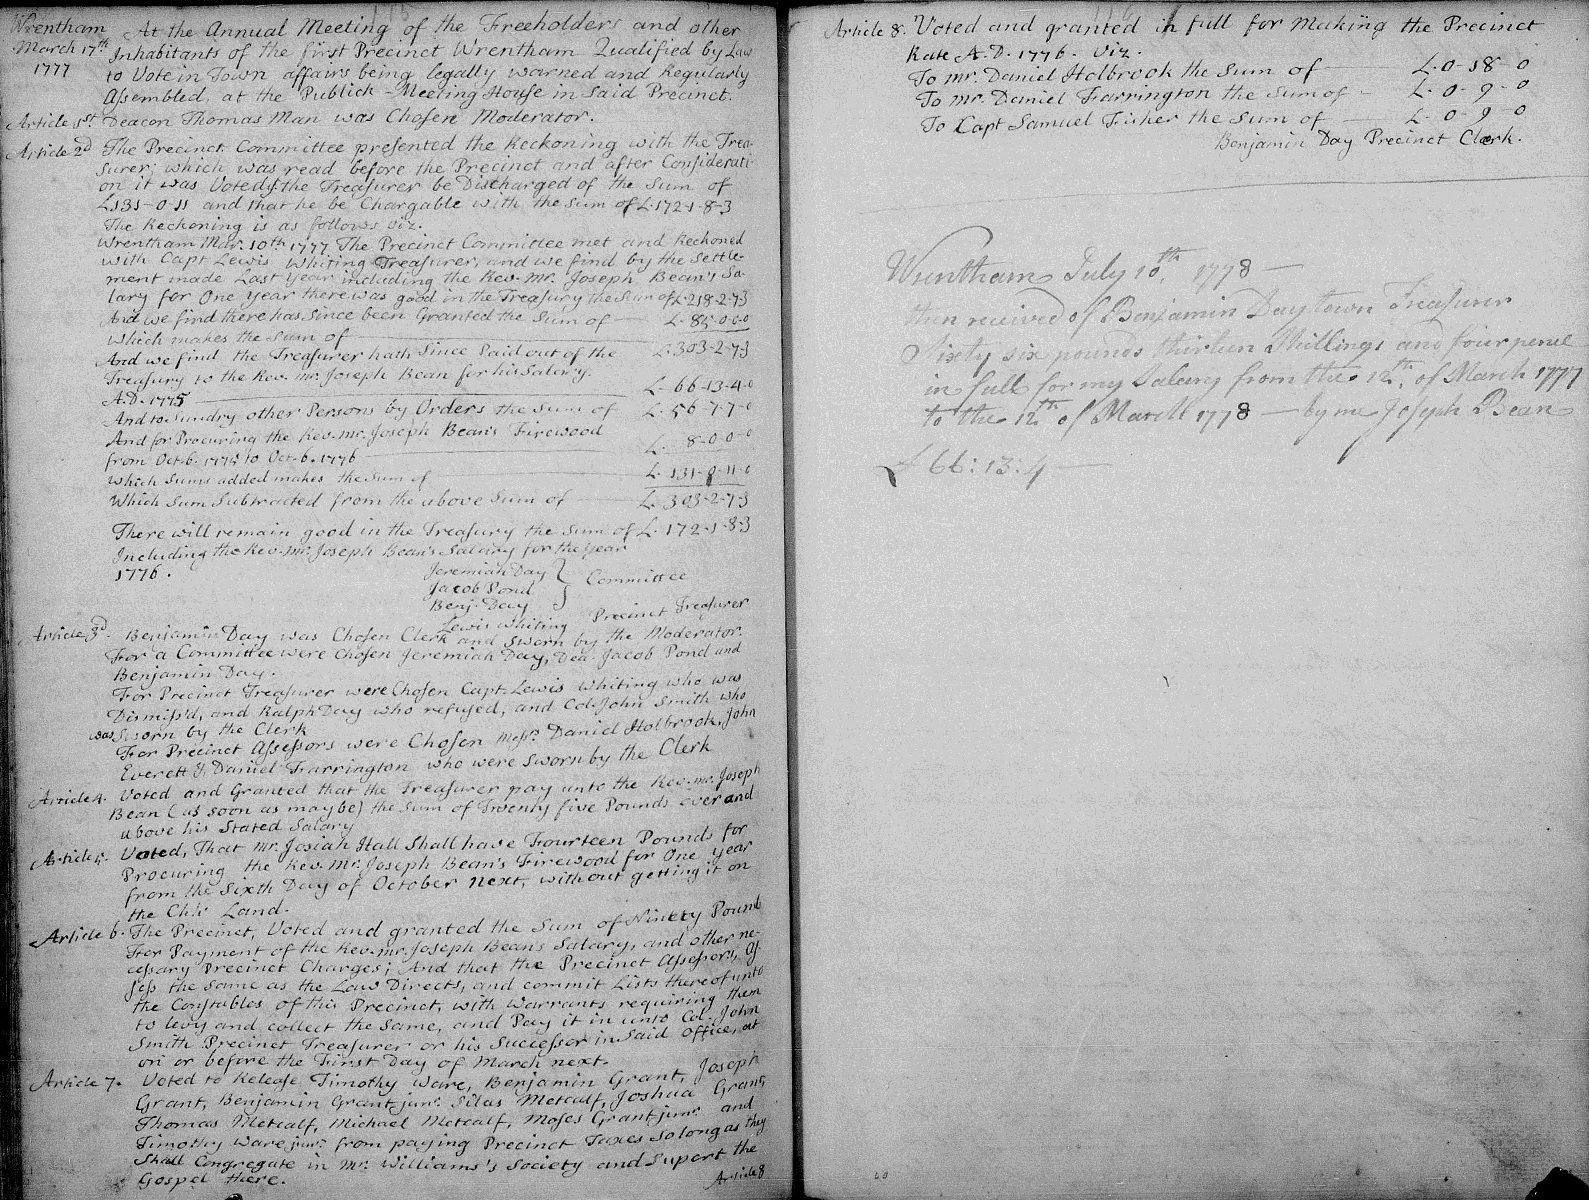 Wrentham March 17th 1777
At the Annual Meeting of the Freeholders and other
Inhabitants of the first Precinct Wrentham Qualified by Law
to Vote in Town affairs being legally warned and Regularly
Assembled, at the Publick-Meeting House in Said Precinct.
Article 1st. Deacon Thomas Man was Chosen Moderator.
Article 2d The Precinct Committee presented the Reckoning with the Trea-
surer; which was read before the Precinct and after Considerati-
on it was Voted the Treasurer be Discharged of the Sum of
£131-0-11 and that he be Chargable with the Sum of £.172-1-8-3
The Reckoning is as follows viz.
Wrentham Mar. 10th 1777 The Precinct Committee met and Reckoned
with Capt Lewis Whiting Treasurer, and we find by the Settle-
ment made Last Year including the Rev. Mr. Joseph Bean's Sa-
lary for One Year there was good in the Treasury the Sum of £.218-2-7-3
And we find there has Since been Granted the Sum of £.85-0-0-0
which makes the Sum of £.303-2-7-3
And we find the Treasurer hath Since Paid out of the
Treasury to the Rev. mr. Joseph Bean for his Salery.
A.D. 1775 £.66-13-4-0
And to Sundry other Persons by Orders the Sum of £.56-7-7-0
And for Procuring the Rev. mr. Joseph Bean's Firewood
from Oct. 6. 1775 to Oct. 6. 1776 £. 8-0-0-0
which Sums added makes the Sum of £.131-0-11-0
Which Sum Subtracted from the above Sum of £.303-2-7-3
There will remain good in the Treasury the Sum of £.172-1-8-3
Including the Rev. mr. Joseph Bean's Salary for the Year
1776.
Jeremiah Day
Jacob Pond Committee
Benj. Day
Lewis Whiting Precinct Treasurer
Article 3d. Benjamin Day was Chosen Clerk and Sworn by the Moderator.
For a Committee were Chosen Jeremiah Day, Dea. Jacob Pond and
Benjamin Day.
For Precinct Treasurer were Chosen Capt. Lewis Whiting who was
Dismiss'd, and Ralph Day who refused, and Col. John Smith who
was Sworn by the Clerk
For Precinct Assessors were Chosen Messrs. Daniel Holbrook, John
Everett & Daniel Farrington who were Sworn by the Clerk
Article 4. Voted and Granted that the Treasurer pay unto the Rev. mr. Joseph
Bean (as soon as maybe) the Sum of Twenty five Pounds over and
above his Stated Salary
Article 5. Voted, That Mr. Josiah Hall Shall have Fourteen Pounds for
Procuring the Rev. Mr. Joseph Bean's Firewood for One Year
from the Sixth Day of October next, without getting it on
the Chh Land.
Article 6. The Precinct, Voted and granted the Sum of Ninety Pound
For Payment of the Rev. mr. Joseph Bean's Salary, and other ne-
cessary Precinct Charges; And that the Precinct Assessors, As-
sess the same as the Law Directs, and commit Lists thereof unto
the Constables of this Precinct, with Warrants requiring them
to levy and collect the Same, and Pay it in unto Col. John
Smith Precinct Treasurer or his Successor in Said Office, at
on or before the First Day of March next.
Article 7. Voted to Release Timothy Ware, Benjamin Grant, Joseph
Grant, Benjamin Grant junr. Silas Metcalf, Joshua Grant,
Thomas Metcalf, Michael Metcalf, Moses Grant junr. and
Timothy Ware junr. from paying Precinct Taxes so long as they
Shall Congregate in Mr. Williams's Society and Suport the
Gospel there.
Article 8
Article 8. Voted and granted in full for Making the Precinct
Rate A.D. 1776. Viz.
To Mr. Daniel Holbrook the Sum of £.0-18-0
To Mr. Daniel Farrington the Sum of £.0-9-0
To Capt Samuel Fisher the Sum of £.0-9-0
Benjamin Day Precinct Clerk.
Wrentham July 10th, 1778
then received of Benjamin Day town Treasurer
Sixty six pounds thirteen Shillings and four pence
in full for my Salary from the 12th, of March 1777
to the 12th of March 1778 — by me Joseph Bean
£ 66: 13: 4